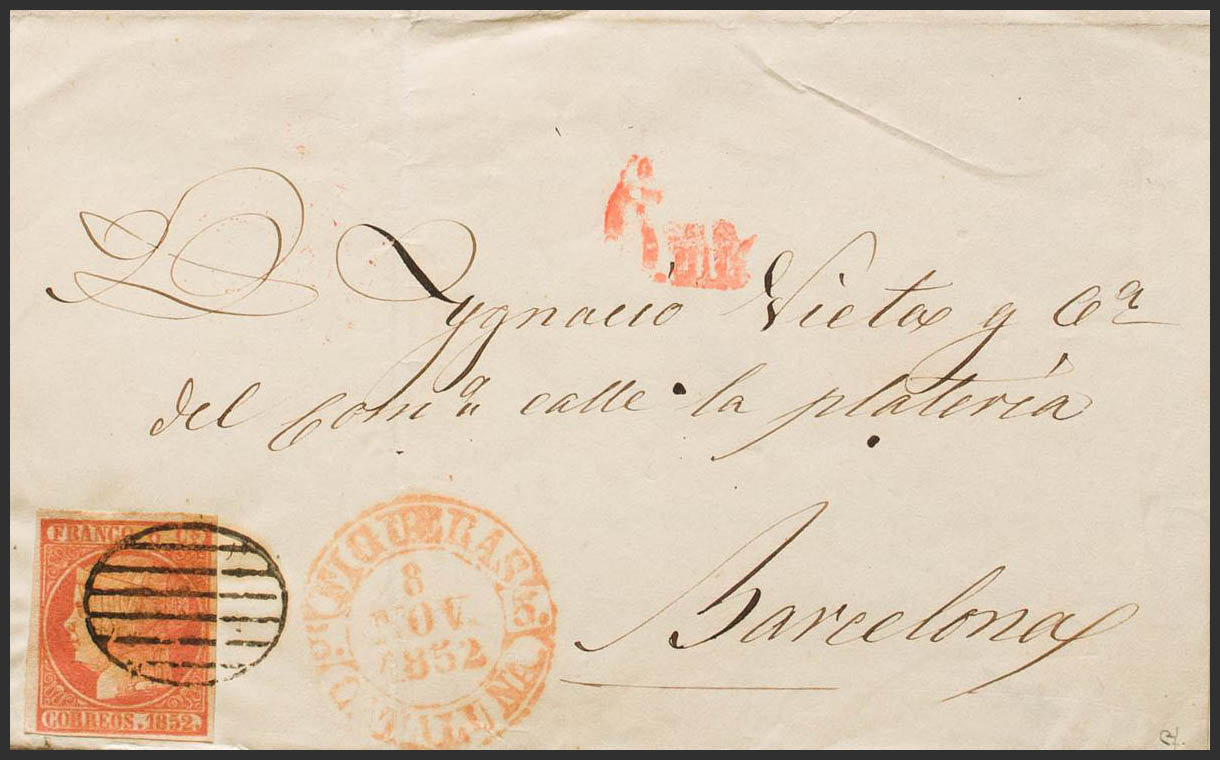 D. Ygnacio Vieta y Cª
del Comº calle la platería
Barcelona
FRANCO 6 CS
CORREOS. 1852.
FIGUERAS
8
NOV.
1852